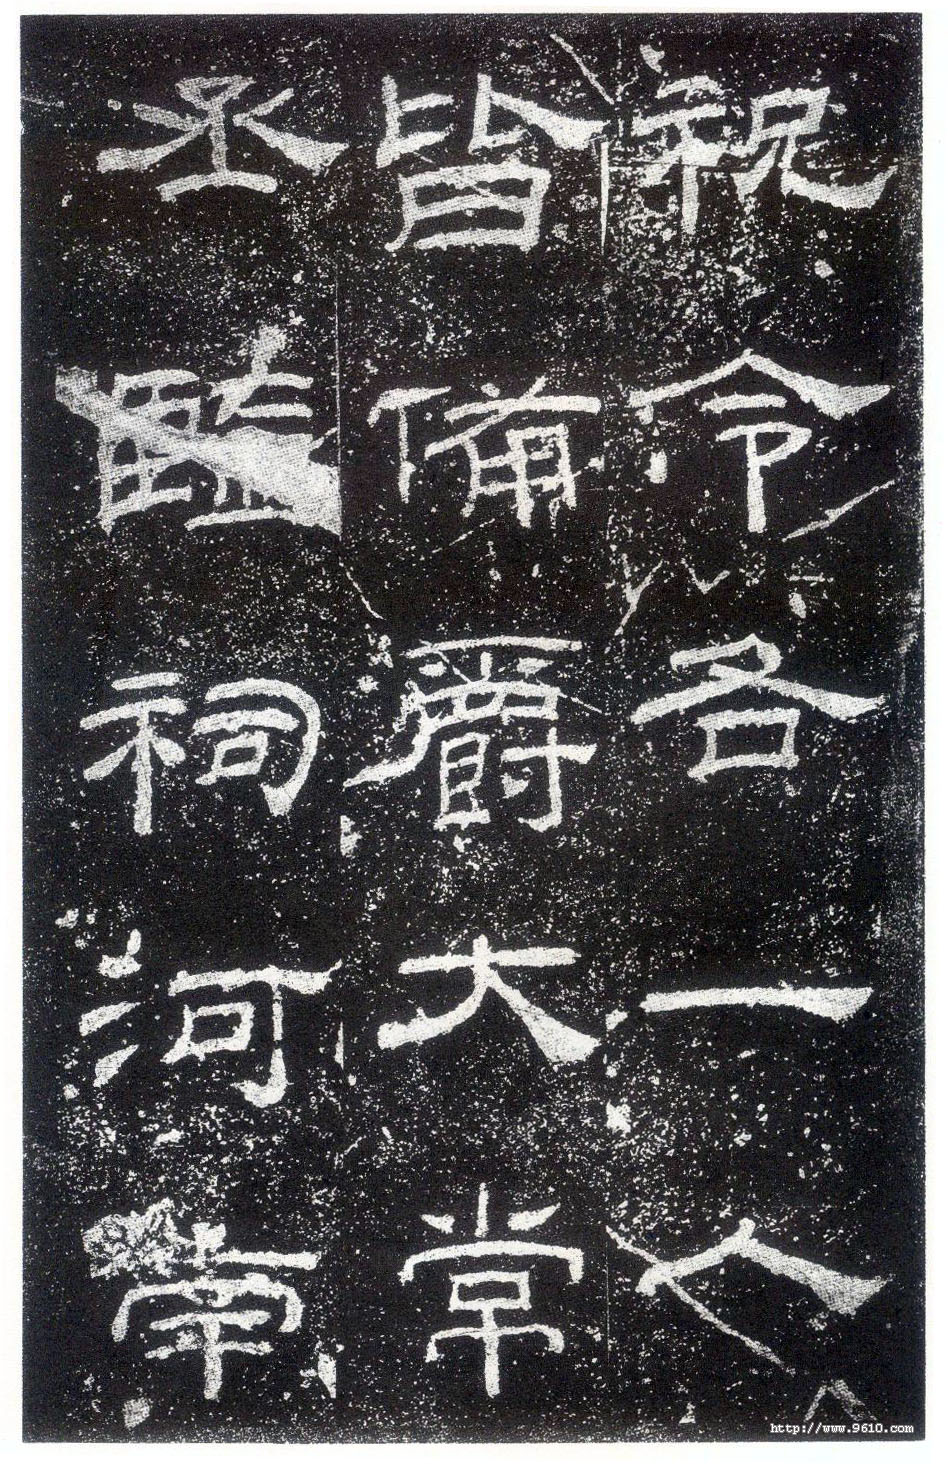 祝令各一人
皆備爵大常
丞監祠河南
http://www.9610.com